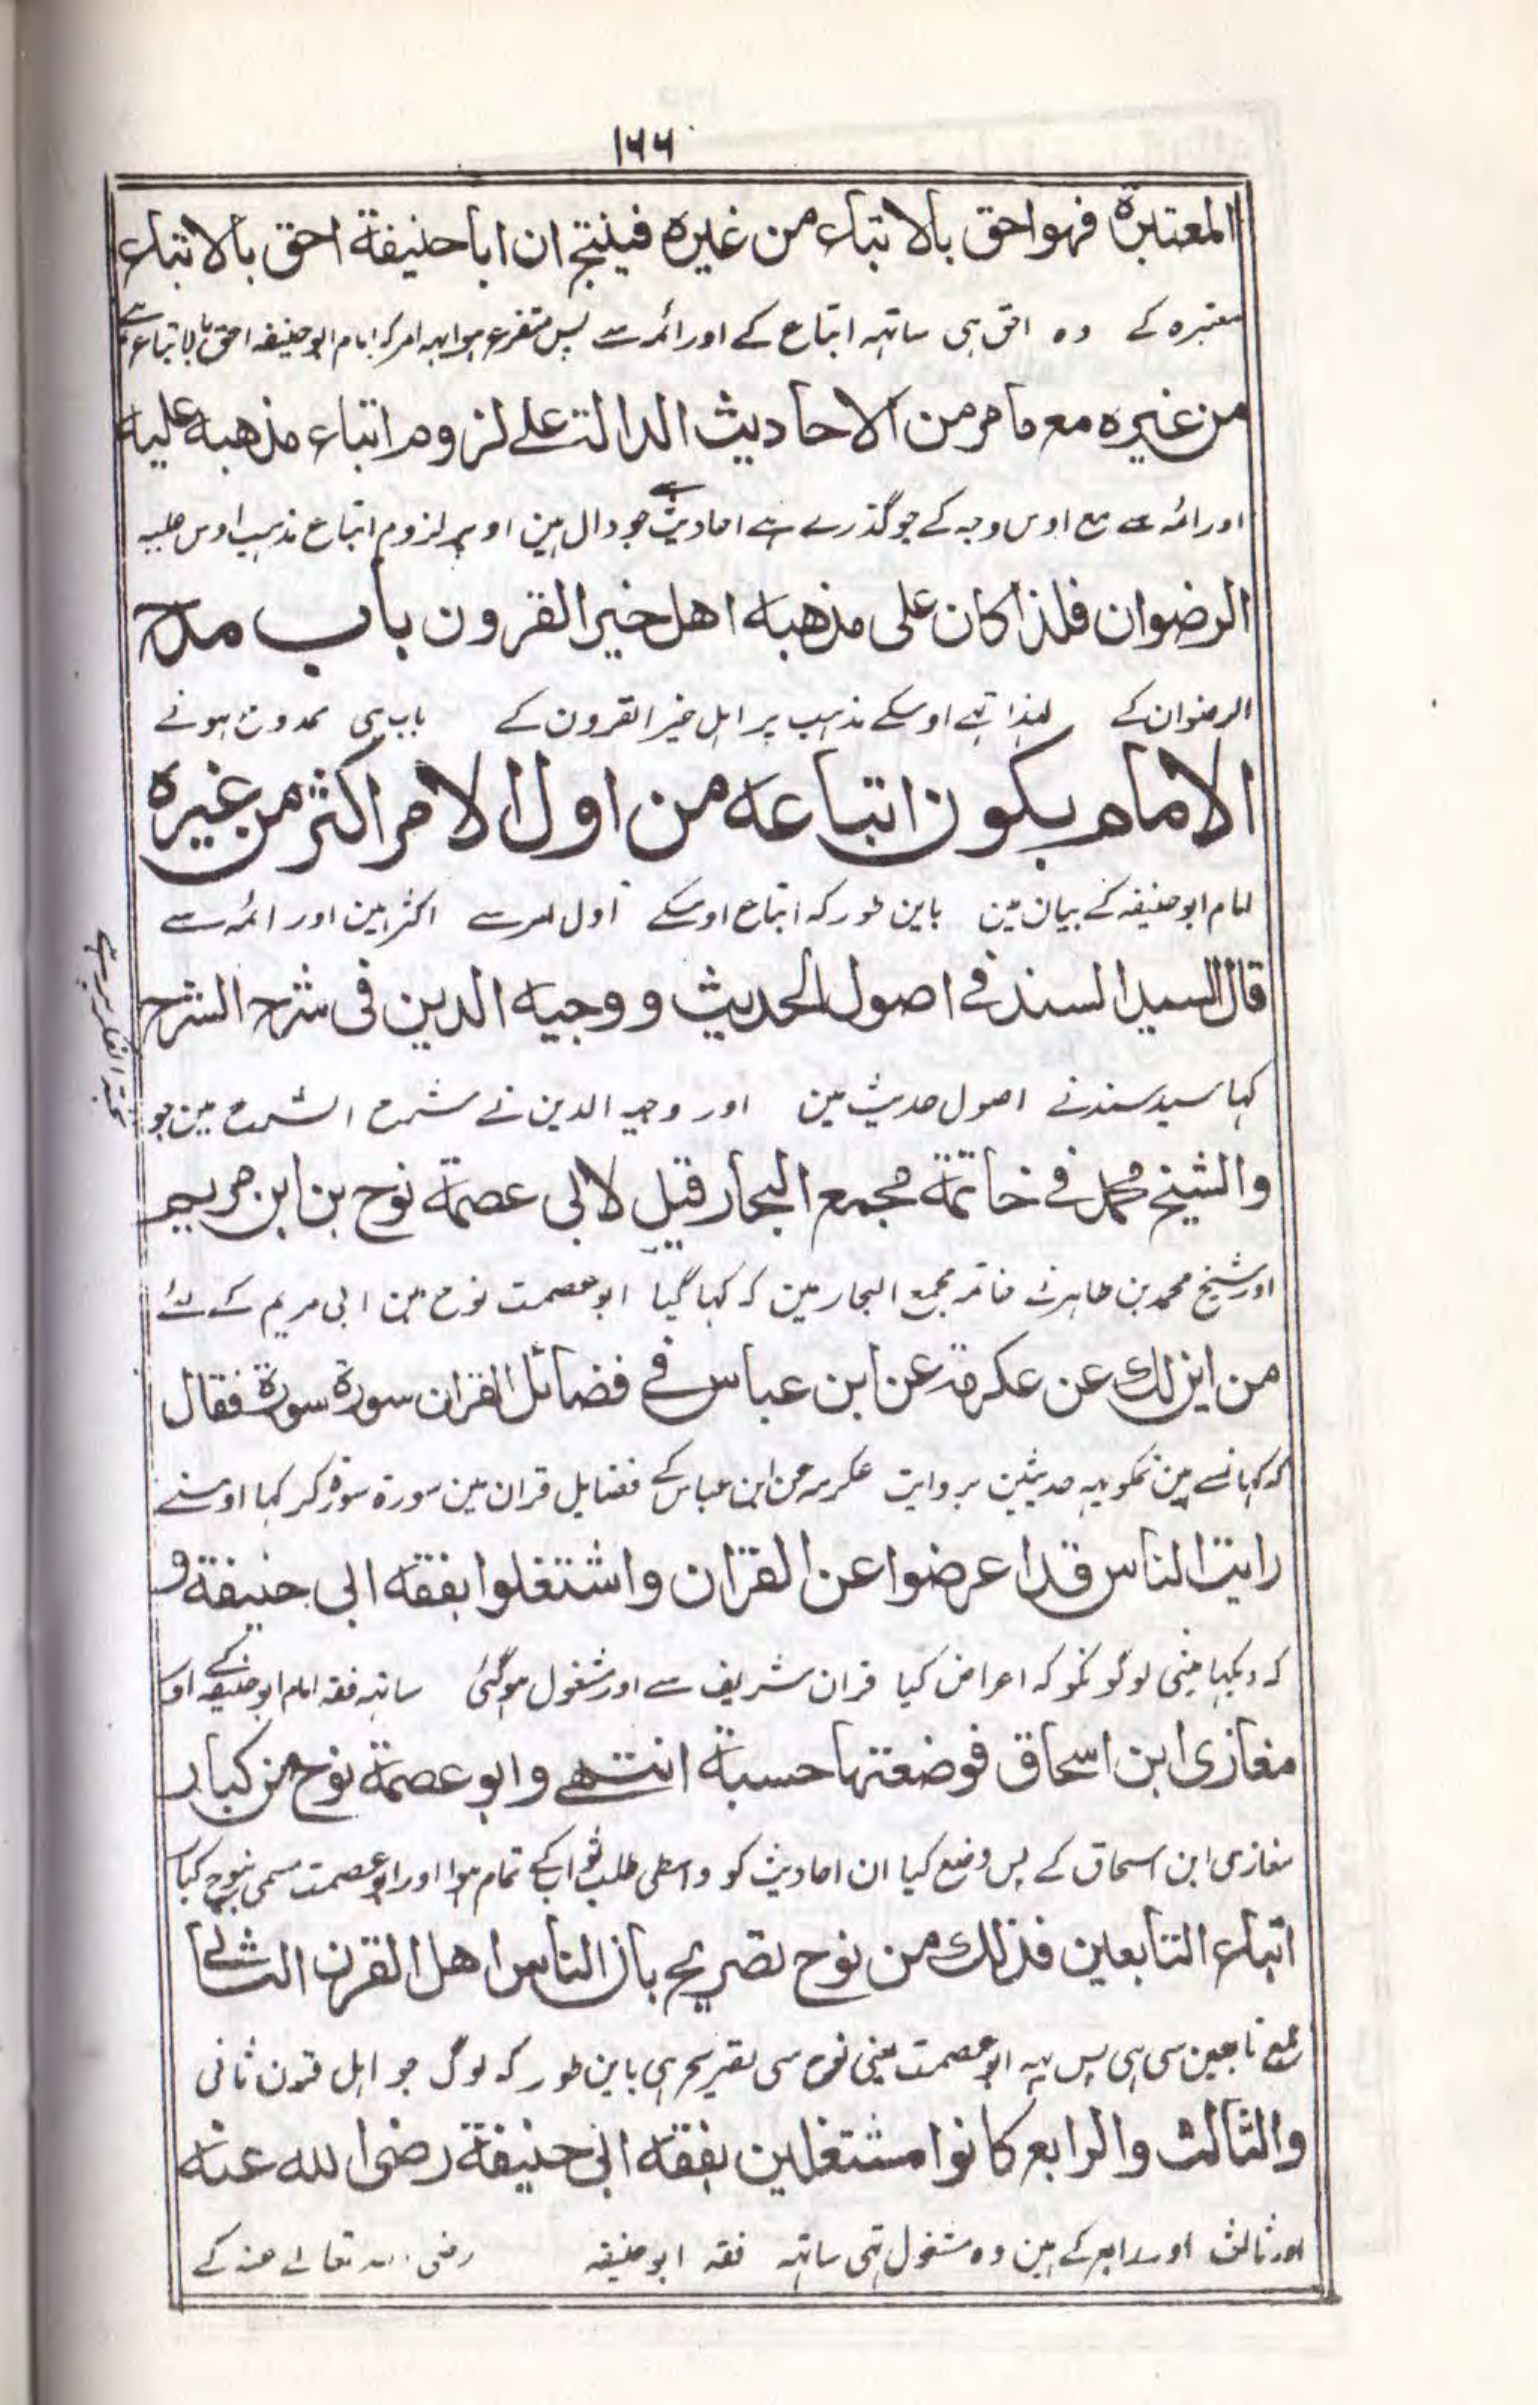 ١٦٦
المعتبرة فهو احق بالاتباع من غيره فينتج ان ابا حنيفة احق بالاتباع
معتبره کے وہ احق ہی ساتہہ اتباع کے اور ائمہ سے پس متفرع ہوا یہہ امر کہ امام ابو حنیفہ احق بالاتباع ہے
من غيره مع ما مر من الاحاديث الدالة علے لزوم اتباع مذهبه عليه
اور ائمہ سے مع اوس وجہ کے جو گذرے ہے احادیث سے جو دال ہین اوپر لزوم اتباع مذہب اوس علیہ
الرضوان فلذا كان على مذهبه اهل خير القرون باب مدح
الرضوان کے لہذا تہے اوسکے مذہب پر اہل خیر القرون کے باب ہی ممدوح ہونے
الامام بكون اتباعه من اول الامر اكثر من غيره
امام ابو حنیفہ کے بیان مین باین طور کہ اتباع اوسکے اول امر سے اکثر ہین اور ائمہ سے
قال السيد السند فے اصول الحديث ووجيه الدين فی شرح الشرح
کہا سید سند نے اصول حدیث مین اور وجیہ الدین نے شرح الشرح مین جو
نخبۃ الفکر پر ہے
والشيخ محمد فے خاتمة مجمع البحار قيل لابی عصمة نوح بن ابن مريم
اور شیخ محمد بن طاہر نے خاتمہ مجمع البحار مین کہ کہا گیا ابو عصمت نوح بن ابی مریم کے لئے
من اين لك عن عكرمة عن ابن عباس فے فضائل القران سورة سورة فقال
کہ کہانسے ہین تمکو یہہ حدیثین بروایت عکرمہ عن ابن عباس کے فضایل قران مین سورۃ سورۃ کر کہا اوسنے
رايت الناس قد اعرضوا عن القران واشتغلوا بفقه ابی حنيفة و
کہ دیکہا مینی لوگونکو کہ اعراض کیا قران شریف سے اور مشغول ہوگئی ساتہہ فقہ امام ابو حنیفہ کے اور
مغازی ابن اسحاق فوضعتها حسبة انتهے وابو عصمة نوح من كبار
مغازی ابن اسحاق کے پس وضع کیا ان احادیث کو واسطی طلب ثواب کے تمام ہوا اور ابو عصمت مسمی بنوح کبار
اتباع التابعين فذلك من نوح تصريح بان الناس اهل القرن الثانے
تبع تابعین سی ہی پس یہہ ابو عصمت یعنی نوح سی تصریح ہی باین طور کہ لوگ جو اہل قرون ثانی
والثالث والرابع كانوا مشتغلين بفقه ابی حنيفة رضی الله عنه
اور ثالث اور رابع کے ہین وہ مشغول تہی ساتہہ فقہ ابو حنیفہ رضی اللہ تعالے عنہ کے